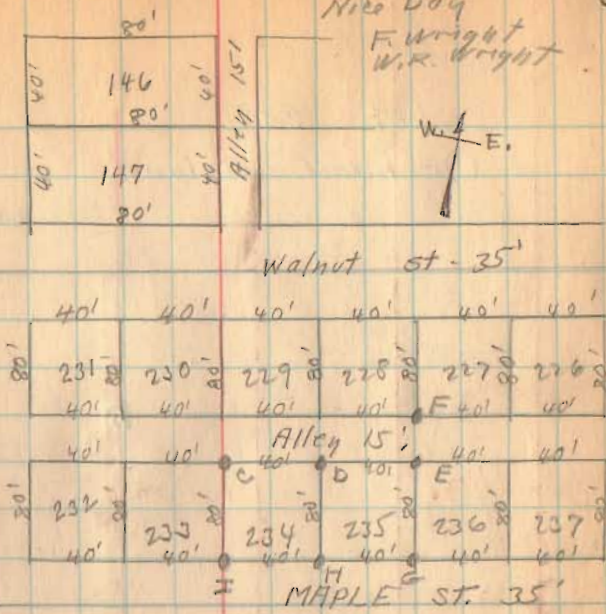 Nice Day
80'
F. Wright
W.R. Wright
40' 146 40' Alley 15'
80'
W. E.
40' 147 40'
80'
Walnut st - 35'
40' 40' 40' 40' 40' 40'
80' 231 80' 230 80' 229 80' 228 80' 227 80' 226
40' 40' 40' 40' F 40' 40'
Alley 15'
40' 40' C 40' D 40' E 40' 40'
80' 232 80' 233 80' 234 80' 235 80' 236 80' 237
40' 40' 40' 40' 40' 40'
H H G
MAPLE ST. 35'